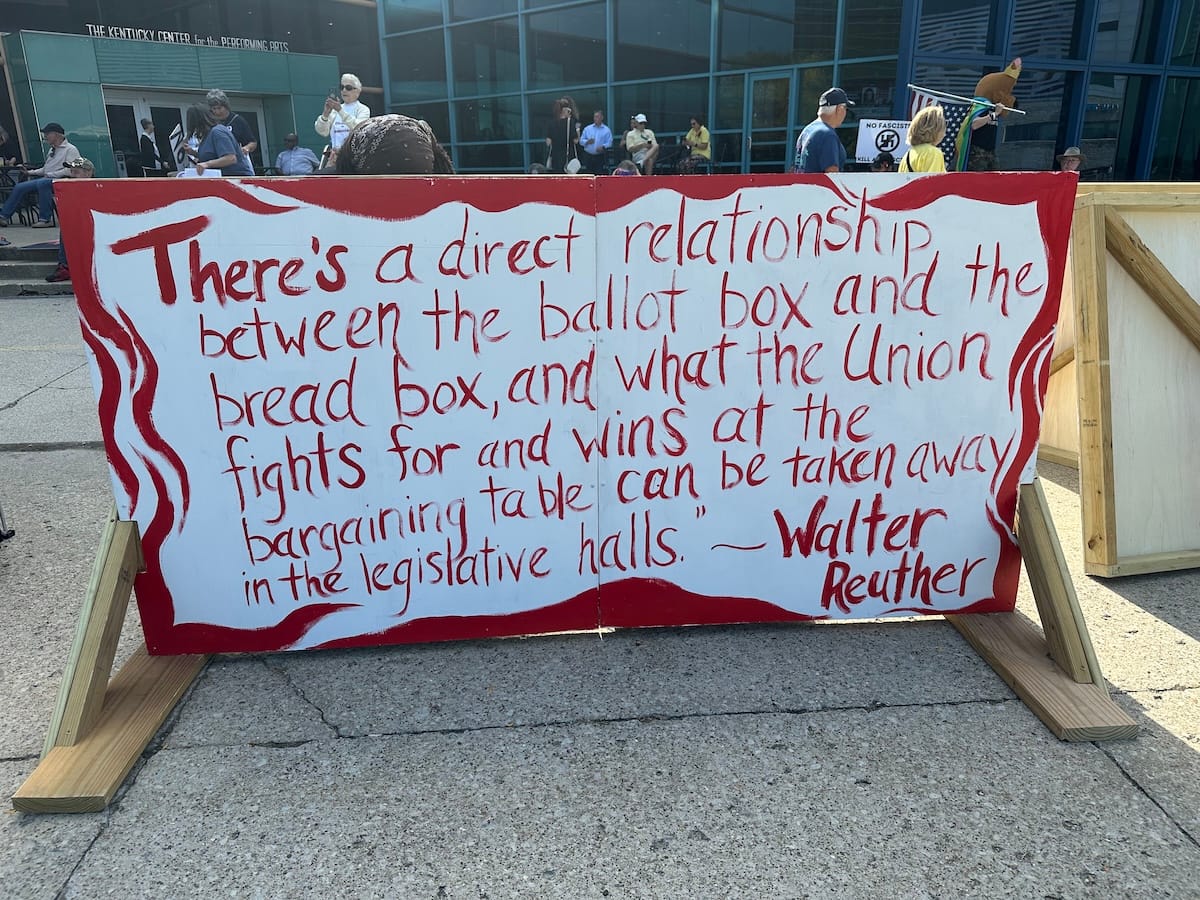 THE KENTUCKY CENTER for the PERFORMING ARTS
NO FASCIST
There's a direct relationship
between the ballot box and the
bread box, and what the Union
fights for and wins at the
bargaining table can be taken away
in the legislative halls." ~ Walter
Reuther